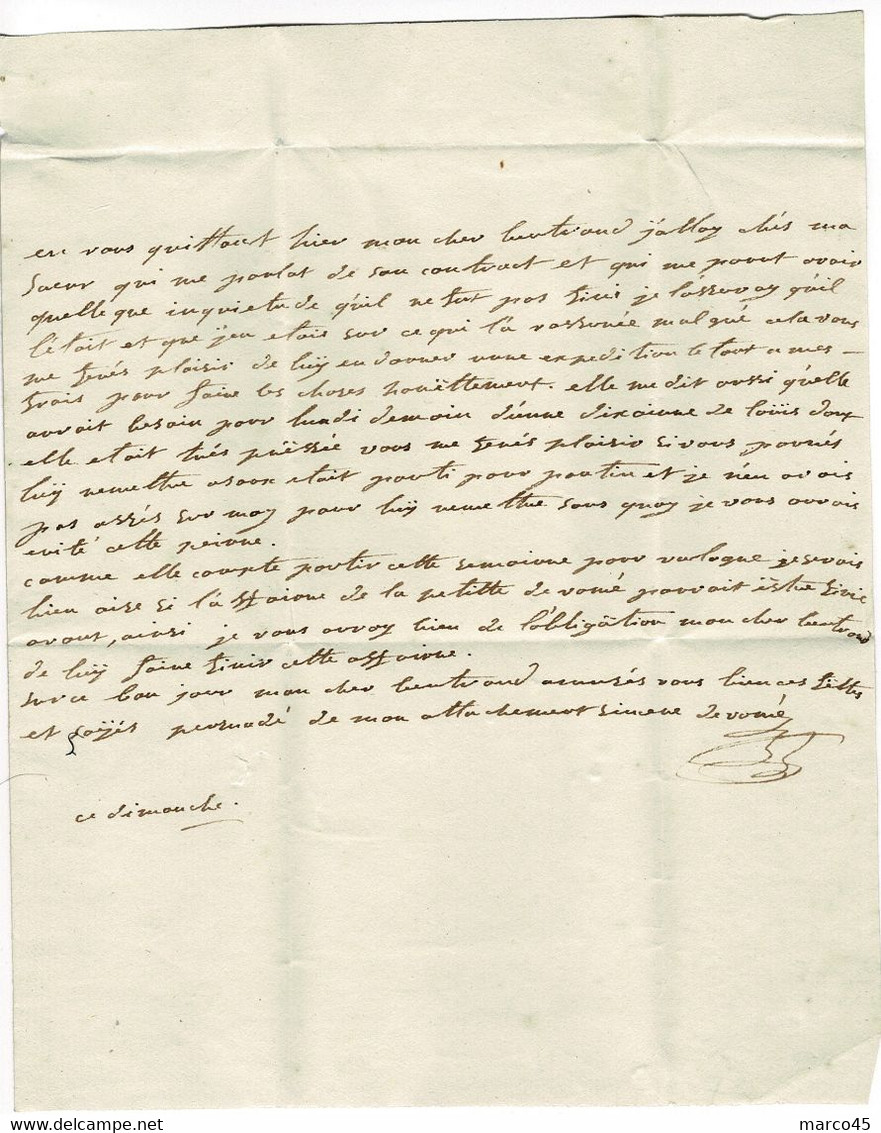 en vous quittant hier mon cher bertrand j'allay chés ma
soeur qui me parlat de son contract et qui me parut avoir
quelleque inquietude qu'il ne fut pas fini je l'assuray qu'il
l'etait et que j'en etais sur ce qui l'a rassurée malgué cela vous
me ferés plaisir de luÿ en donner une expedition le tout a mes -
frais pour faire les choses honëttement. elle me dit aussi qu'elle
avrait besoin pour lundi demain d'une dixainne de loüis dont
elle etait trés préssée vous me ferés plaisir si vous pouvés
luÿ remettre etait parti pour et je n'en avais
pas assés sur moy pour luÿ remettre sans quoy je vous avrais
evité cette peinne.
comme elle compte partir cette semainne pour valogne je serais
bien aise si l'affaire de la petitte de vomé pouvait ëstre finie
avant, ainsi je vous avray bien de l'obligätion mon cher bertrand
de luÿ faire finir cette affaire.
sur ce bon jour mon cher bertrand amusés vous bien ces fëttes
et soÿés persuadé de mon attachement sincere devomé
ce dimanche.
marco45